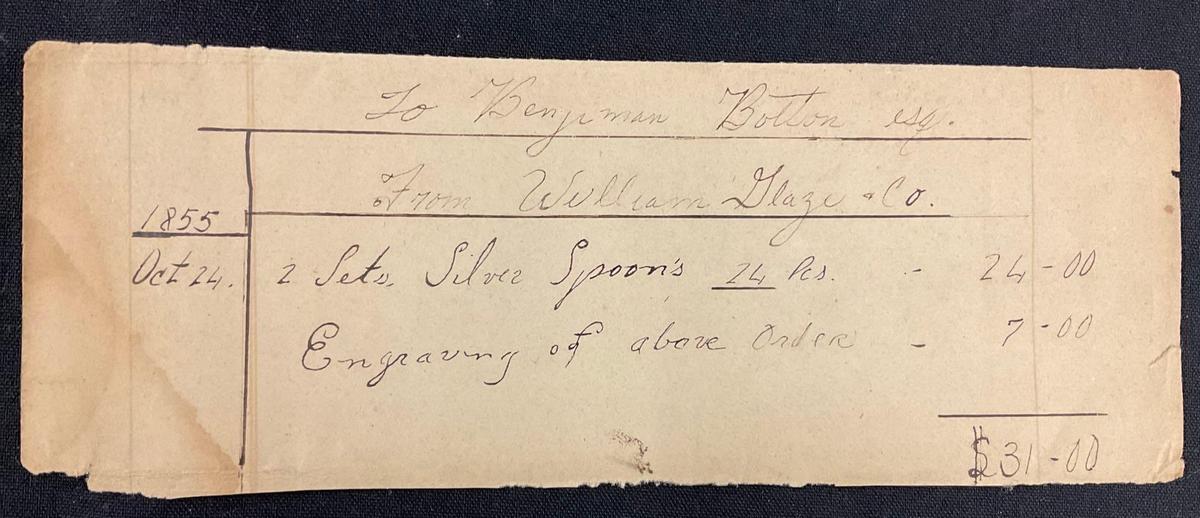 To Benjiman Bolton esq.
From William Glaze & Co.
1855
Oct 24. 2 Sets. Silver Spoon's 24 Pcs. - 24-00
Engraving of above Order - 7-00
$31-00